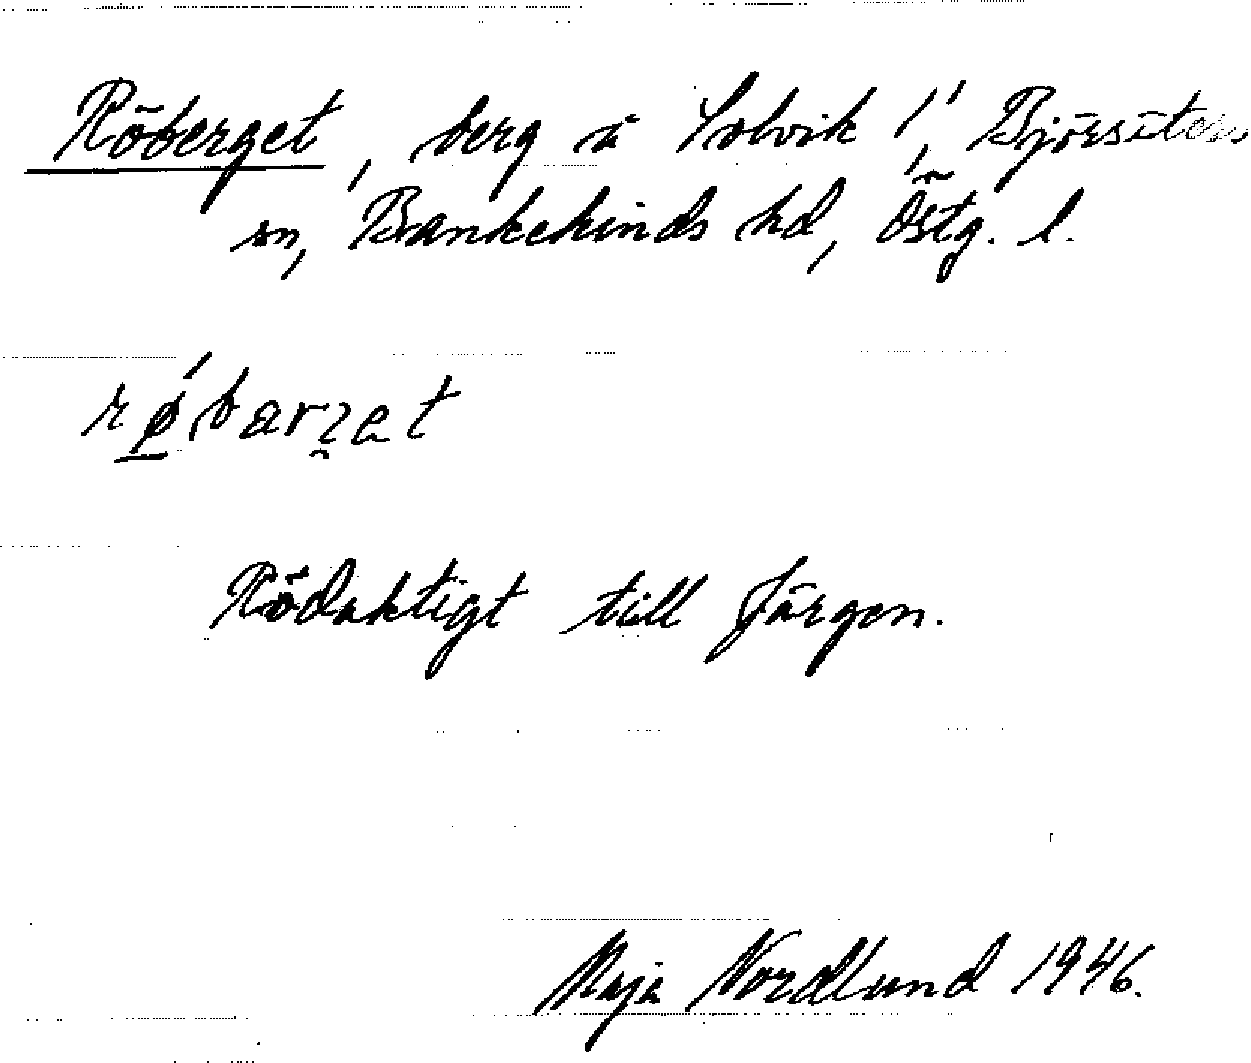 Röberget, berg å Solvik 1¹, Björsäters
sn, Bankekinds hd, Östg. l.
rǿ̲barʒat
Rödaktigt till färgen.
Maja Nordlund 1946.